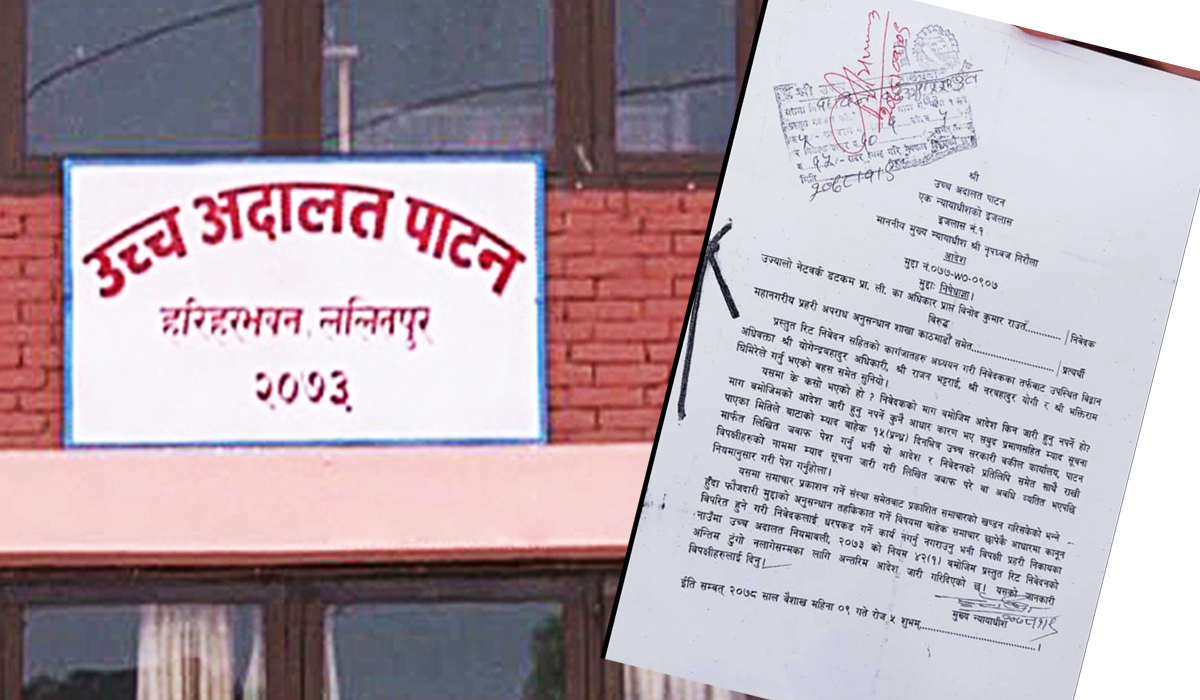 उच्च अदालत पाटन
हरिहरभवन, ललितपुर
२०७३
श्री
उच्च अदालत पाटन
एक न्यायाधीशको इजलास
इजलास नं.१
माननीय मुख्य न्यायाधीश श्री नृपध्वज निरौला
आदेश
मुद्दा नं.०७७-WO-०९०७
मुद्दा: निषेधाज्ञा।
उज्यालो नेटवर्क डटकम प्रा. ली. का अधिकार प्राप्त विनोद कुमार राउत............ निवेदक
विरुद्ध
महानगरीय प्रहरी अपराध अनुसन्धान शाखा काठमाडौं समेत........................ प्रत्यर्थी
प्रस्तुत रिट निवेदन सहितको कागजातहरु अध्ययन गरी निवेदकका तर्फबाट उपस्थित विद्वान
अधिवक्ता श्री योगेन्द्रबहादुर अधिकारी, श्री राजन भट्टराई, श्री नरबहादुर योगी र श्री भक्तिराम
घिमिरेले गर्नु भएको बहस समेत सुनियो।
यसमा के कसो भएको हो ? निवेदकको माग बमोजिम आदेश किन जारी हुनु नपर्ने हो?
माग बमोजिमको आदेश जारी हुनु नपर्ने कुनै आधार कारण भए सबुद प्रमाणसहित म्याद सूचना
पाएका मितिले बाटाको म्याद बाहेक १५(पन्ध्र) दिनभित्र उच्च सरकारी वकील कार्यालय, पाटन
मार्फत लिखित जवाफ पेश गर्नु भनी यो आदेश र निवेदनको प्रतिलिपि समेत साथै राखी
विपक्षीहरुको नाममा म्याद सूचना जारी गरी लिखित जवाफ परे वा अवधि व्यतित भएपछि
नियमानुसार गरी पेश गर्नुहोला।
यसमा समाचार प्रकाशन गर्ने संस्था समेतबाट प्रकाशित समाचारको खण्डन गरिसकेको भन्ने
हुँदा फौजदारी मुद्दाको अनुसन्धान तहकिकात गर्ने विषयमा बाहेक समाचार छापेकै आधारमा कानून
विपरित हुने गरी निवेदकलाई धरपकड गर्ने कार्य नगर्नु नगराउनु भनी विपक्षी प्रहरी निकायका
नाउँमा उच्च अदालत नियमावली, २०७३ को नियम ४२(१) बमोजिम प्रस्तुत रिट निवेदनको
अन्तिम टुंगो नलागेसम्मका लागि अन्तरिम आदेश जारी गरिदिएको छ। यसको जानकारी
विपक्षीहरुलाई दिनु।
मुख्य न्यायाधीश
ईति सम्बत् २०७८ साल बैशाख महिना ०९ गते रोज ५ शुभम्..............................।